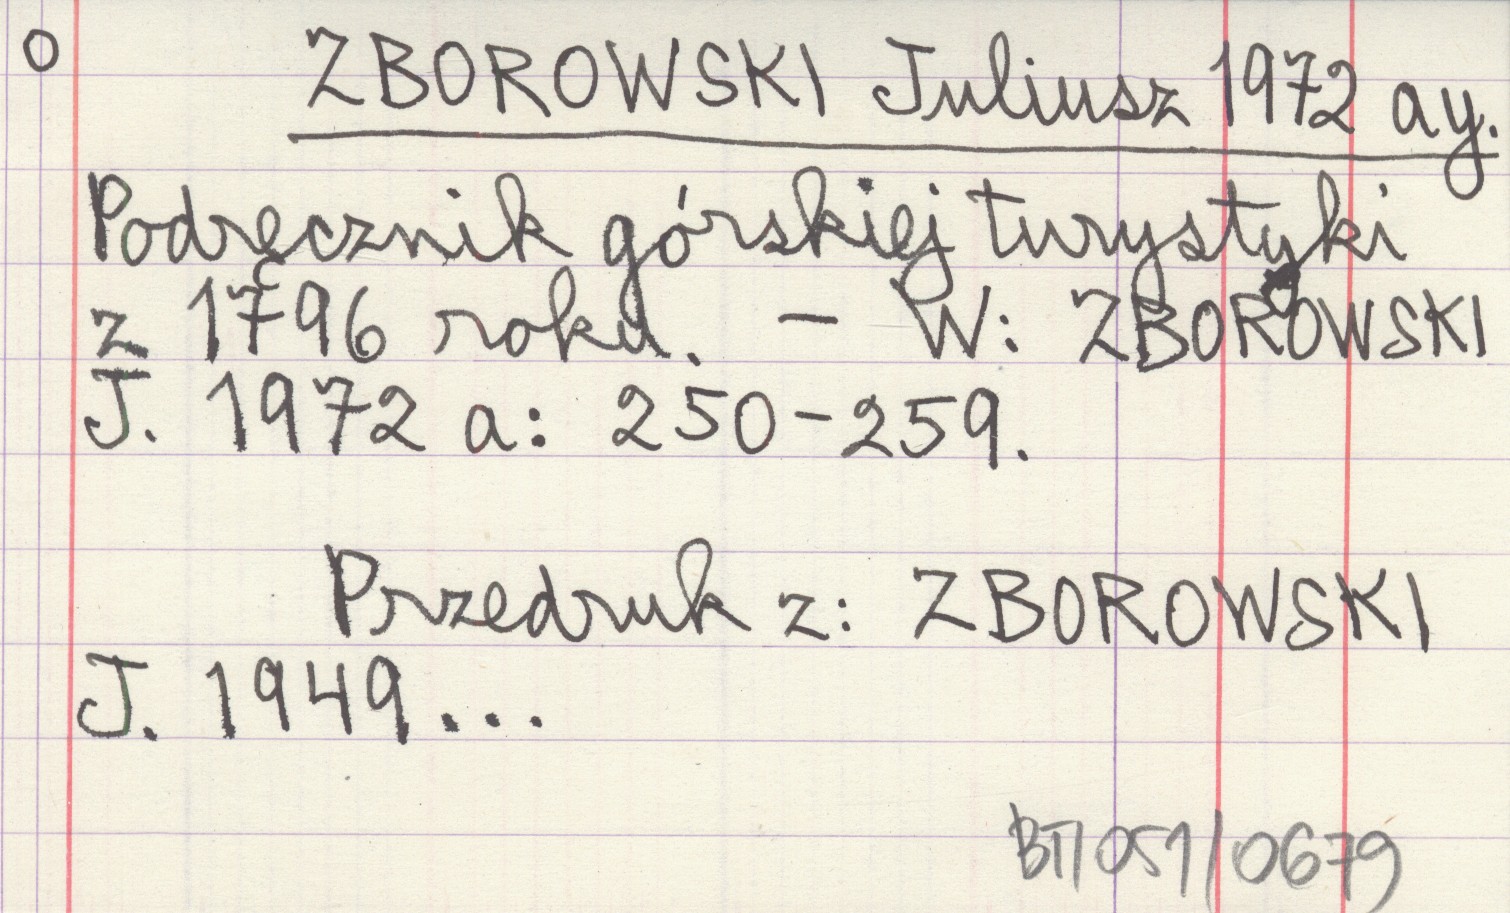 O ZBOROWSKI Juliusz 1972 ay.
Podręcznik górskiej turystyki
z 1796 roku. – W: ZBOROWSKI
J. 1972 a: 250-259.
Przedruk z: ZBOROWSKI
J. 1949...
BT/051/0679